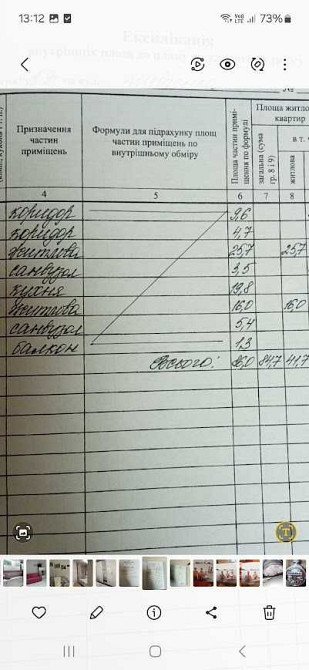 13:12
73%
Експлікація
Призначення частин приміщень
Формули для підрахунку площ частин приміщень по внутрішньому обміру
Площа частин приміщення по формулі
Площа житлової квартир
загальна (сума гр. 8 і 9)
в т.
житлова
4 5 6 7 8
коридор 9,6
коридор 4,7
житлова 25,7 25,7
санвузол 3,5
кухня 19,8
житлова 16,0 16,0
санвузол 5,4
балкон 1,3
Всього: 86,0 84,7 41,7